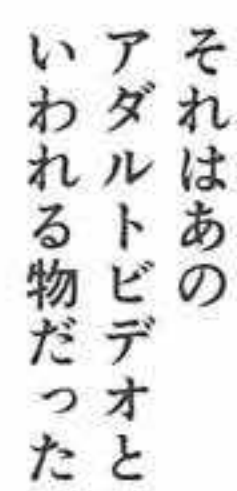 それはあの
アダルトビデオと
いわれる物だった